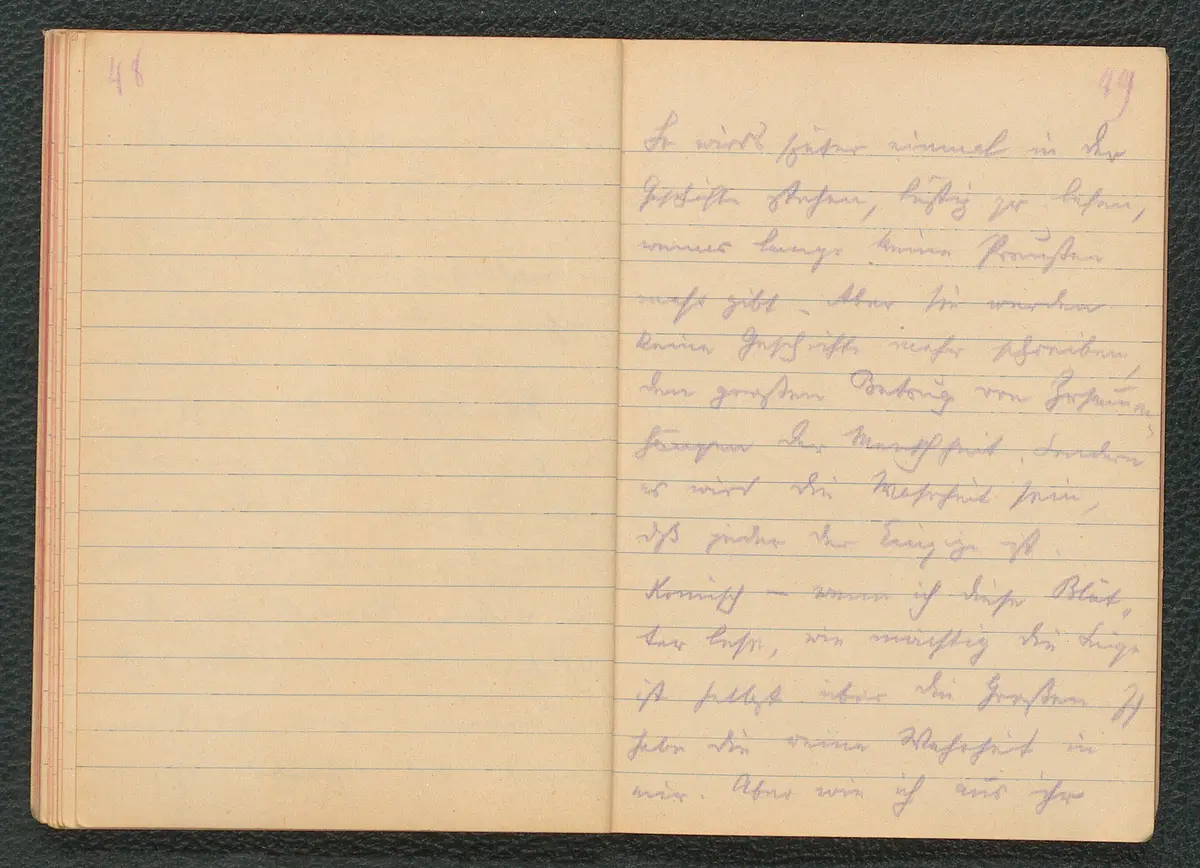 48
49
So wirds später einmal in der
Geschichte stehen, lustig zu lesen,
wenns lange keine Preußen
mehr gibt. Aber sie werden
keine Geschichte mehr schreiben,
den großen Betrug von
der Menschheit. Sondern
es wird die Wahrheit sein,
dß jeder der Einzige ist.
Komisch – wenn ich diese Blät„
ter lese, wie mächtig die Lüge
ist selbst über die Großen. Ich
habe die reine Wahrheit in
mir. Aber wie ich aus ihr